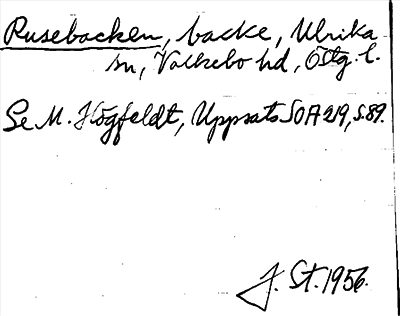 Rusebacken, backe, Ulrika
sn, Valkebo hd, Östg. l.
Se M. Högfeldt, Uppsats SOFA 219, s. 89.
J. St. 1956.